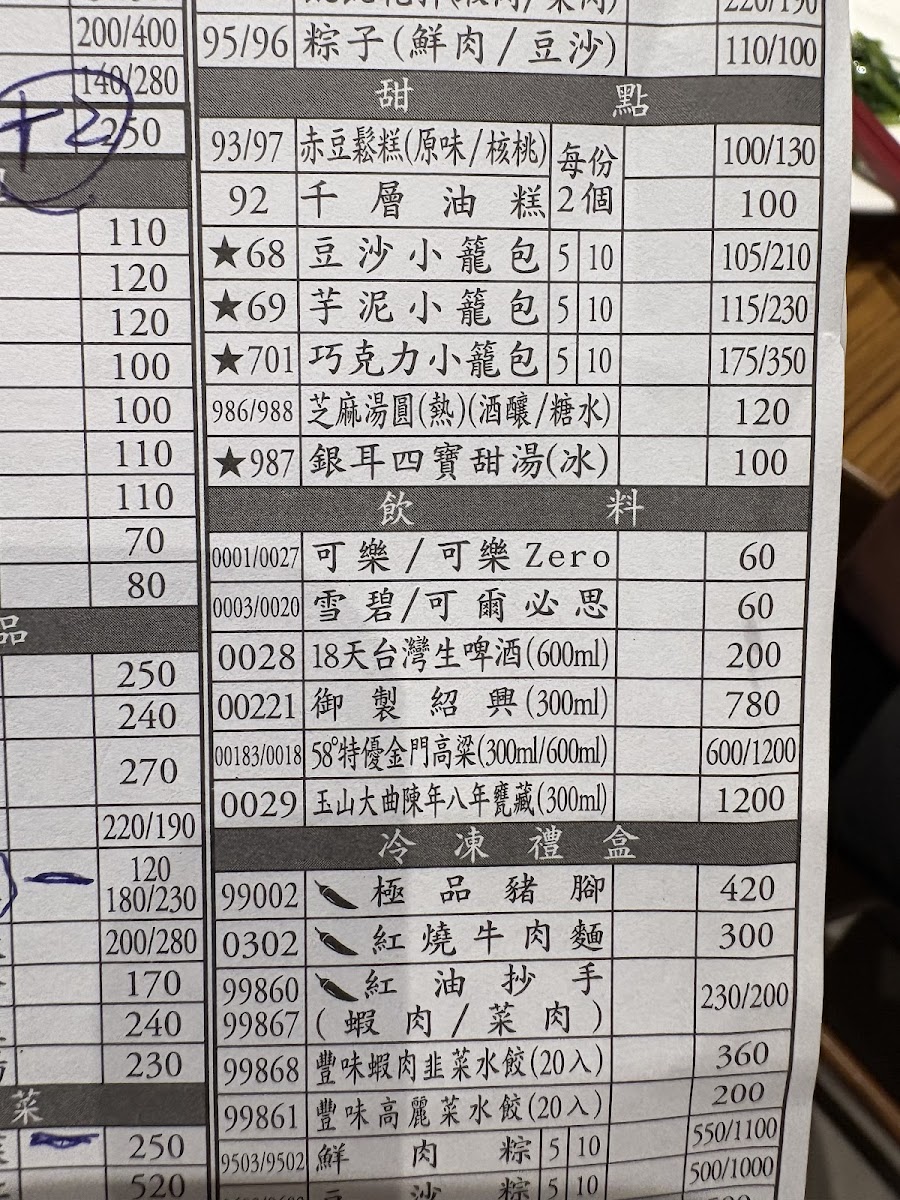 200/400
140/280
+2
250
110
120
120
100
100
110
110
70
80
品
250
240
270
220/190
120
180/230
200/280
170
240
230
菜
250
520
95/96 粽子(鮮肉/豆沙) 110/100
甜點
93/97 赤豆鬆糕(原味/核桃) 每份2個 100/130
92 千層油糕 100
★68 豆沙小籠包 5 10 105/210
★69 芋泥小籠包 5 10 115/230
★701 巧克力小籠包 5 10 175/350
986/988 芝麻湯圓(熱)(酒釀/糖水) 120
★987 銀耳四寶甜湯(冰) 100
飲料
0001/0027 可樂/可樂Zero 60
0003/0020 雪碧/可爾必思 60
0028 18天台灣生啤酒(600ml) 200
00221 御製紹興(300ml) 780
00183/0018 58°特優金門高粱(300ml/600ml) 600/1200
0029 玉山大曲陳年八年甕藏(300ml) 1200
冷凍禮盒
99002 極品豬腳 420
0302 紅燒牛肉麵 300
99860 紅油抄手 230/200
99867 (蝦肉/菜肉)
99868 豐味蝦肉韭菜水餃(20入) 360
99861 豐味高麗菜水餃(20入) 200
9503/9502 鮮肉粽 5 10 550/1100
豆沙粽 5 10 500/1000